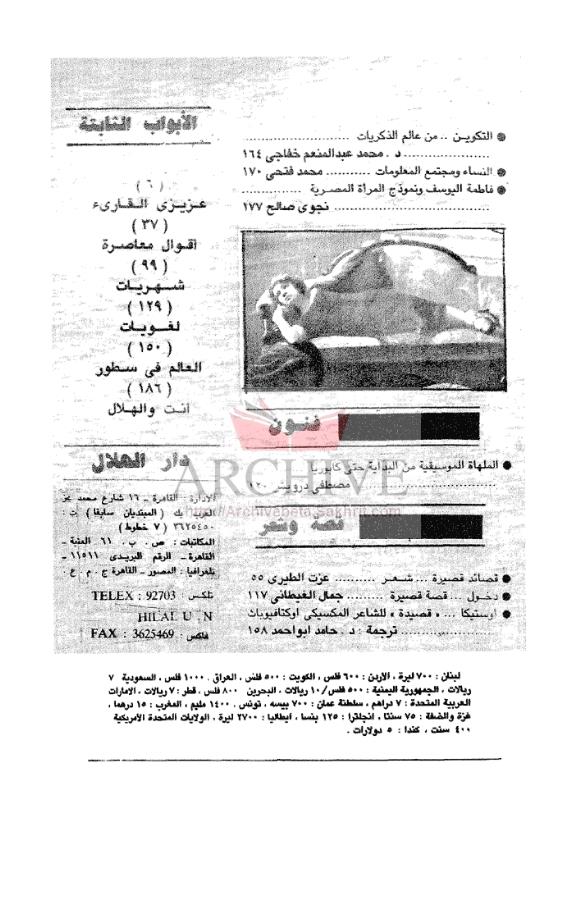 ● التكوين .. من عالم الذكريات ..........................
........................ د . محمد عبدالمنعم خفاجى ١٦٤
● النساء ومجتمع المعلومات ........... محمد فتحى ١٧٠
● فاطمة اليوسف ونموذج المرأة المصرية ...............
........................................ نجوى صالح ١٧٧
فنون
● الملهاة الموسيقية من البداية حتى كابوريا
........................ مصطفى درويش ١٢٠
قصة وشعر
● قصائد قصيرة ... شعر .......... عزت الطيرى ٥٥
● دخول ... قصة قصيرة ......... جمال الغيطانى ١١٧
● اوستيكا ... « قصيدة » للشاعر المكسيكى اوكتافيوباث
........................ ترجمة : د . حامد ابواحمد ١٥٨
الأبواب الثابتة
( ٦ )
عزيزى القارىء
( ٣٧ )
أقوال معاصرة
( ٩٩ )
شهريات
( ١٢٩ )
لغويات
( ١٥٠ )
العالم فى سطور
( ١٨٦ )
أنت والهلال
دار الهلال
الادارة : القاهرة - ١٦ شارع محمد عز
العرب بك ( المبتديان سابقا ) ت :
٣٦٢٥٤٥٠ ( ٧ خطوط )
المكاتبات : ص . ب . ٦١ العتبة -
القاهرة - الرقم البريدى ١١٥١١ -
تلغرافيا : المصور - القاهرة ج . م . ع .
تلكس : TELEX : 92703
HILAL U N
فاكس : FAX : 3625469
ARCHIVE
http://Archivebeta.Sakhrit.com
لبنان : ٧٠٠ ليرة ، الأردن : ٦٠٠ فلس ، الكويت : ٥٠٠ فلس ، العراق . ١٠٠٠ فلس ، السعودية ٧
ريالات ، الجمهورية اليمنية : ٥٠٠ فلس / ١٠ ريالات ، البحرين ٨٠٠ فلس . قطر : ٧ ريالات ، الامارات
العربية المتحدة : ٧ دراهم ، سلطنة عمان : ٧٠٠ بيسه ، تونس . ١٤٠٠ مليم ، المغرب : ١٥ درهما ،
غزة والضفة : ٧٥ سنتا ، انجلترا : ١٢٥ بنسا ، ايطاليا : ٢٧٠٠ ليرة ، الولايات المتحدة الأمريكية
٤٠٠ سنت ، كندا : ٥ دولارات .